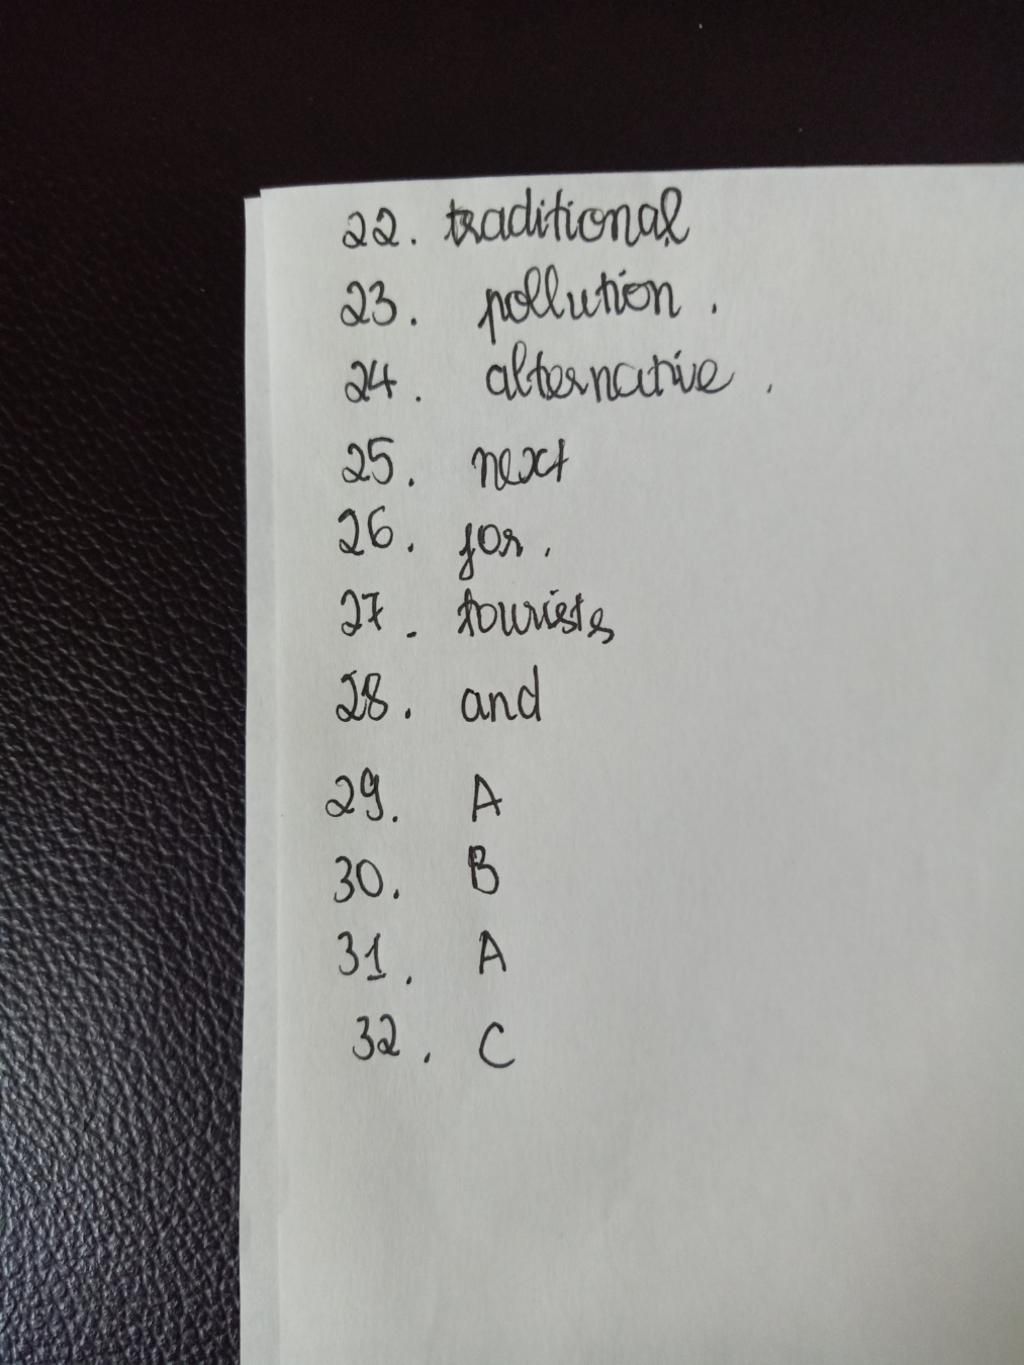 22. traditional
23. pollution.
24. alternative.
25. next
26. for.
27. tourists
28. and
29. A
30. B
31. A
32. C